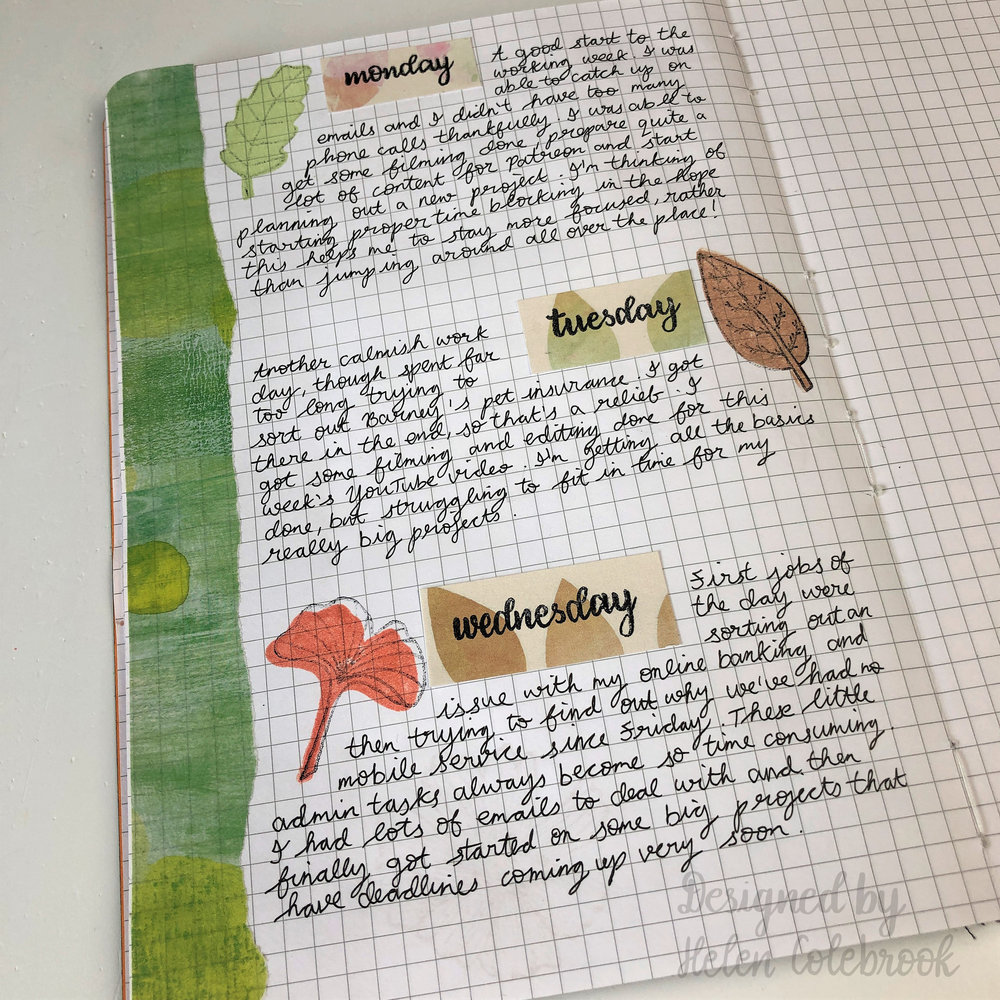 monday
A good start to the
working week. I was
able to catch up on
emails and I didn't have too many
phone calls thankfully. I was able to
get some filming done, prepare quite a
lot of content for Patreon and start
planning out a new project. I'm thinking of
starting proper time blocking in the hope
this helps me to stay more focused, rather
than jumping around all over the place!
tuesday
Another calmish work
day, though spent far
too long trying to
sort out Barney's pet insurance. I got
there in the end, so that's a relief. I
got some filming and editing done for this
week's YouTube video. I'm getting all the basics
done, but struggling to fit in time for my
really big projects.
wednesday
First jobs of
the day were
sorting out an
issue with my online banking and
then trying to find out why we've had no
mobile service since Friday. These little
admin tasks always become so time consuming
I had lots of emails to deal with and then
finally got started on some big projects that
have deadlines coming up very soon.
Designed by
Helen Colebrook